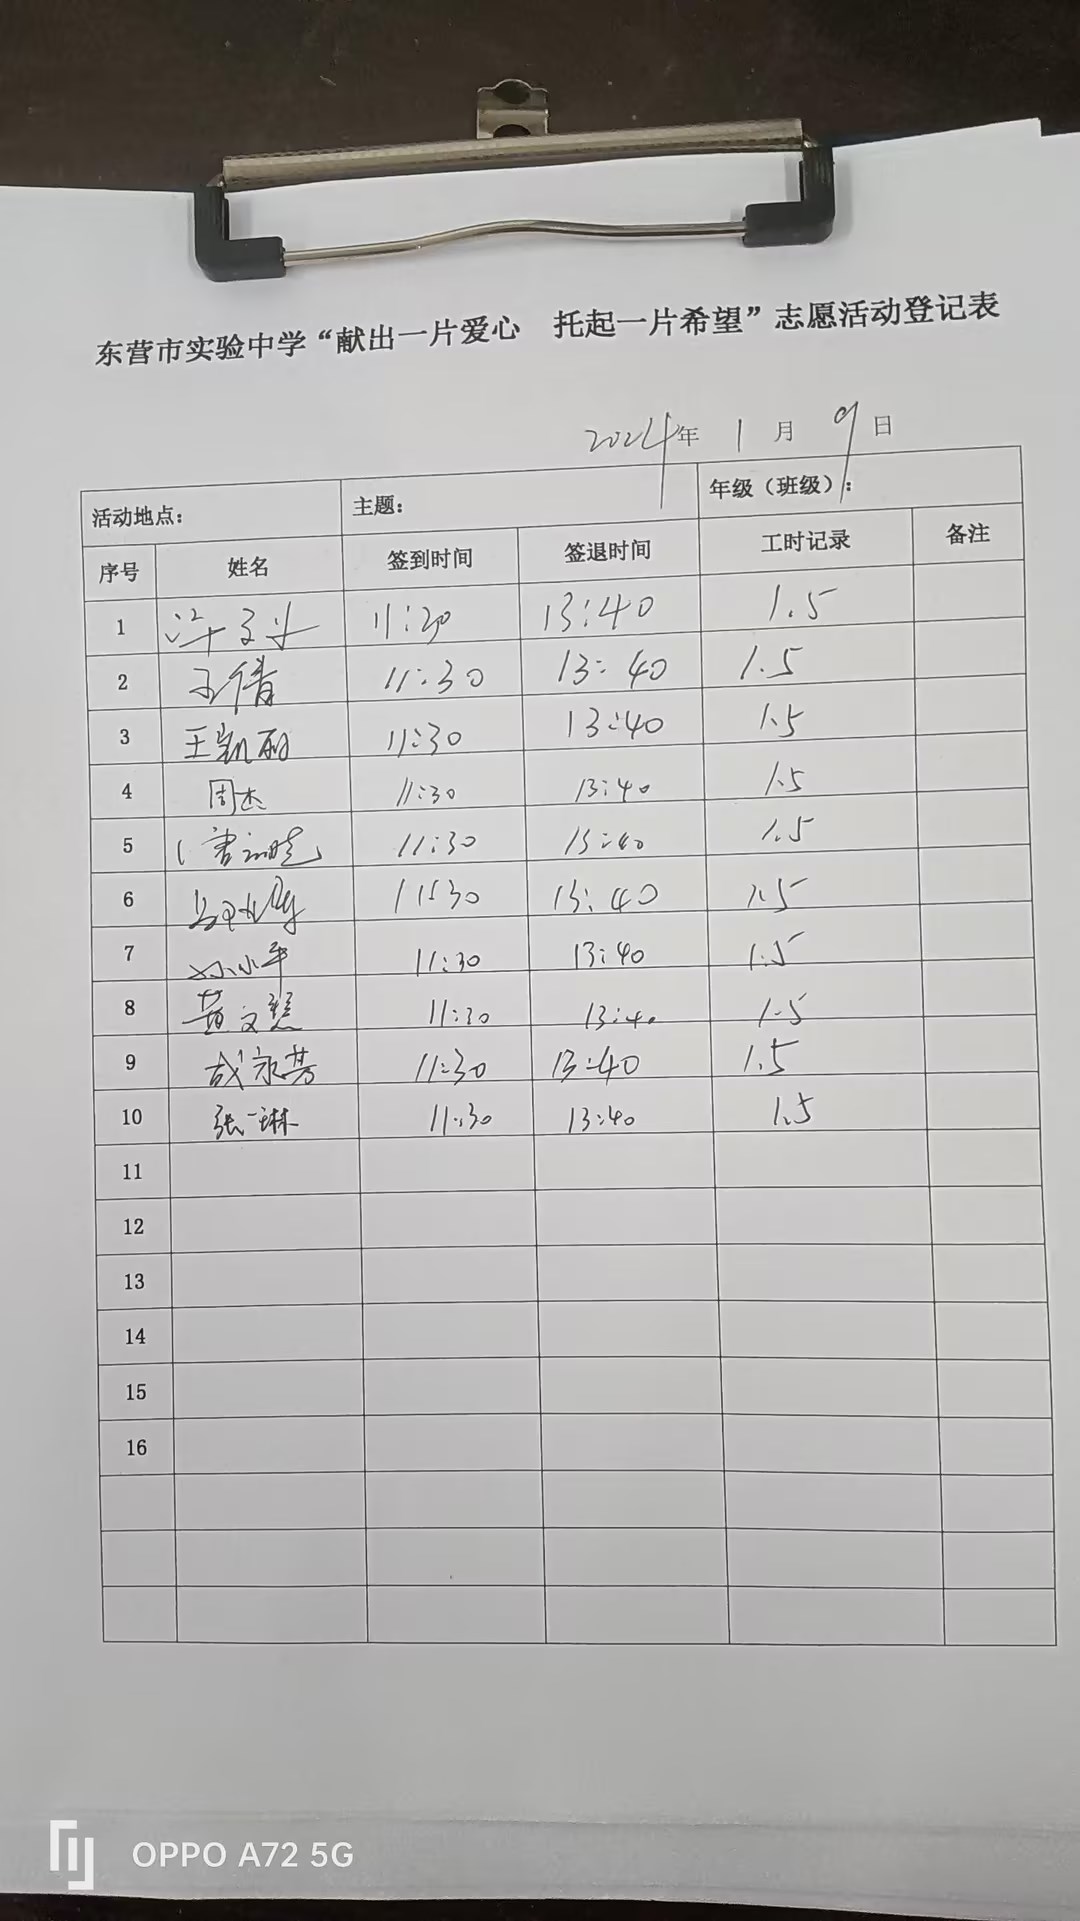 东营市实验中学“献出一片爱心 托起一片希望”志愿活动登记表
2024年 1月 9日
活动地点： 主题： 年级（班级）：
序号 姓名 签到时间 签退时间 工时记录 备注
1 11:30 13:40 1.5
2 王倩 11:30 13:40 1.5
3 王凯丽 11:30 13:40 1.5
4 周杰 11:30 13:40 1.5
5 11:30 13:40 1.5
6 11:30 13:40 1.5
7 孙小平 11:30 13:40 1.5
8 黄文慧 11:30 13:40 1.5
9 成永芳 11:30 13:40 1.5
10 张一琳 11:30 13:40 1.5
11
12
13
14
15
16
OPPO A72 5G